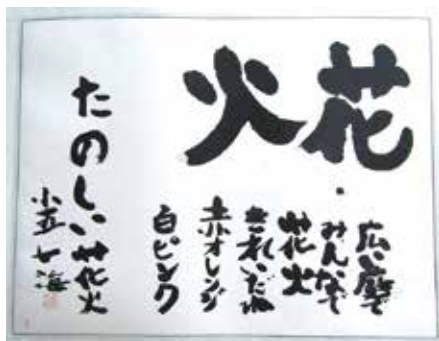 花火
広い庭で
みんなで
花火
きれいだね
赤オレンジ
白ピンク
たのしい花火
小五 七海